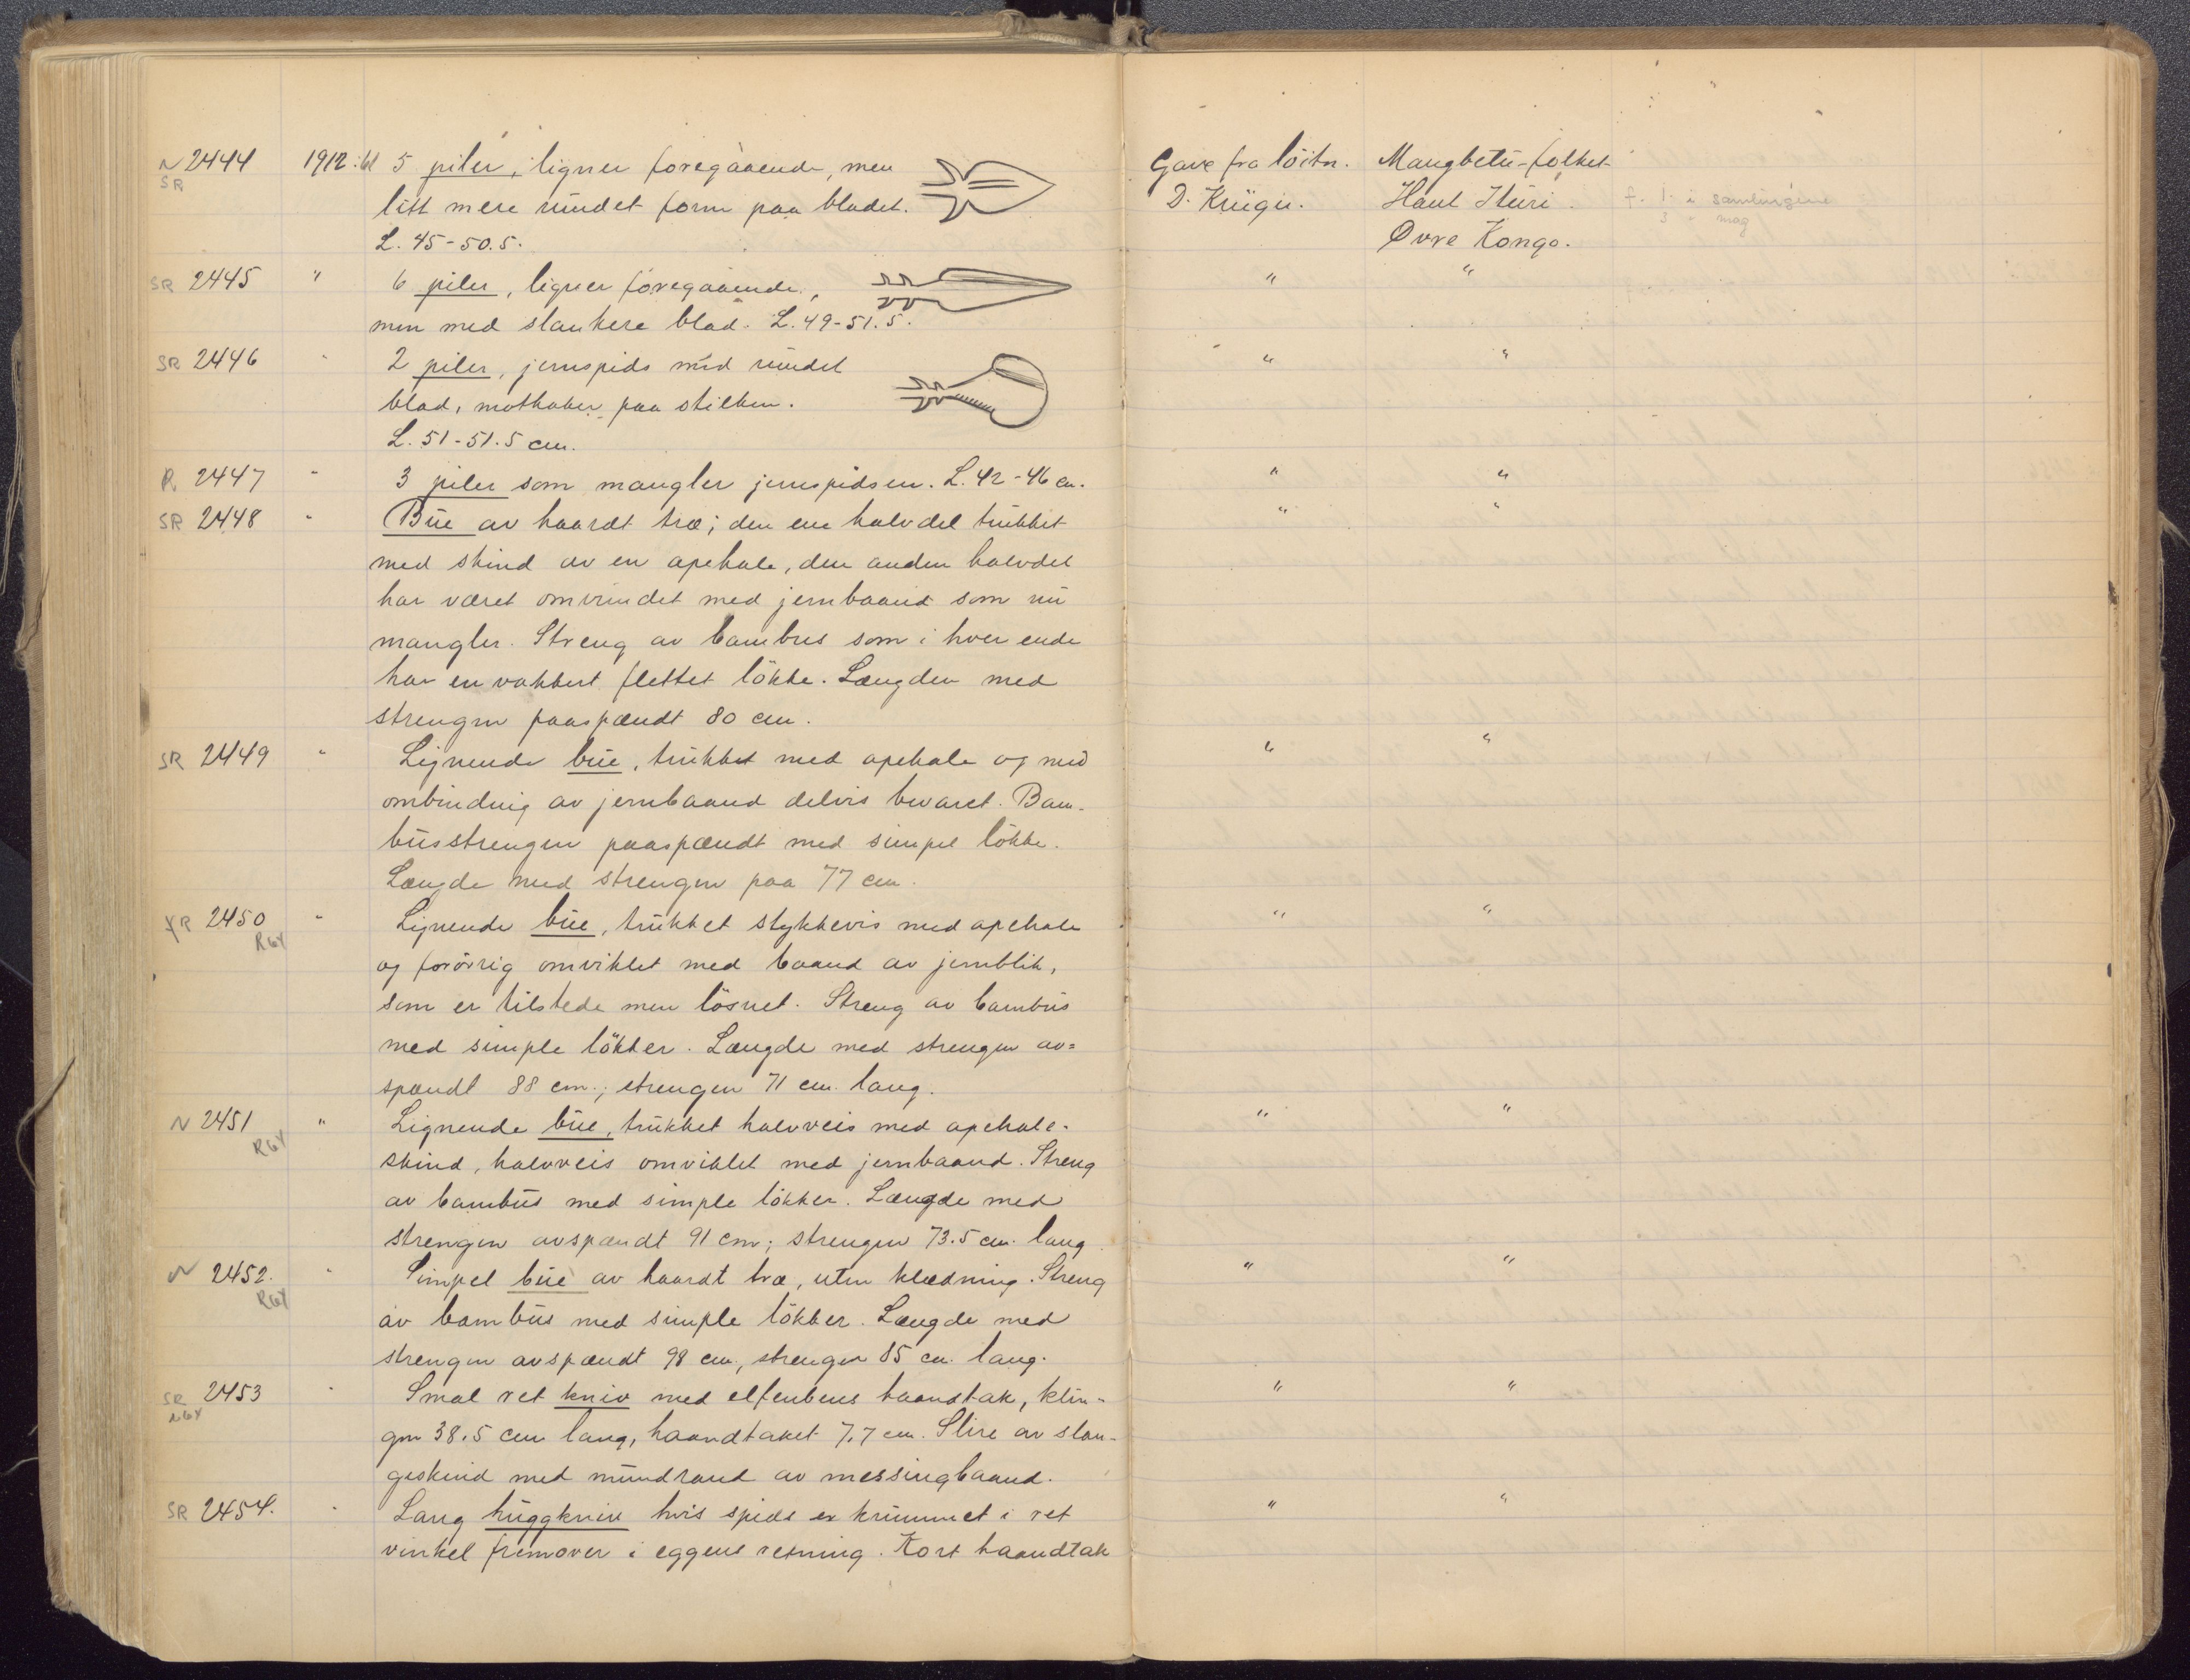 N 2444 1912:61 5 piler, ligner foregaaende, men Gave fra löitn. Mangbetu-folket
SR litt mere rundet form paa bladet. D. Krüger. Haut Ituri f. 1. i samlingene
L. 45-50.5. Øvre Kongo. 3 " mag
SR 2445 " 6 piler, ligner foregaaende, " "
men med slankere blad. L. 49-51.5.
SR 2446 " 2 piler, jernspids med rundet " "
blad, mothaker paa stilken.
L. 51-51.5 cm.
R 2447 " 3 piler som mangler jernspidsen. L. 42-46 cm. " "
SR 2448 " Bue av haardt træ; den ene halvdel trukket " "
med skind av en apehale, den anden halvdel
har været omvundet med jernbaand som nu
mangler. Streng av bambus som i hver ende
har en vakkert flettet lökke. Længden med
strengen paaspændt 80 cm.
SR 2449 " Lignende bue, trukket med apehale og med " "
ombinding av jernbaand delvis bevaret. Bam-
busstrengen paaspændt med simpel lökke.
Længde med strengen paa 77 cm.
R 2450 " Lignende bue, trukket stykkevis med apehale " "
R64 og forövrig omviklet med baand av jernblik,
som er tilstede men lösnet. Streng av bambus
med simple lökker. Længde med strengen av=
spændt 88 cm.; strengen 71 cm. lang.
N 2451 " Lignende bue, trukket halvveis med apehale- " "
R64 skind, halvveis omviklet med jernbaand. Streng
av bambus med simple lökker. Længde med
strengen avspændt 91 cm; strengen 73.5 cm. lang.
N 2452. " Simpel bue av haardt træ, uten klædning. Streng " "
R64 av bambus med simple lökker. Længde med
strengen avspændt 98 cm, strengen 85 cm. lang.
SR 2453 " Smal ret kniv med elfenbens haandtak, klin- " "
gen 38.5 cm lang, haandtaket 7.7 cm. Slire av slan-
geskind med mundrand av messingbaand.
SR 2454. " Lang huggkniv hvis spids er krummet i ret " "
vinkel fremover i eggens retning. Kort haandtak